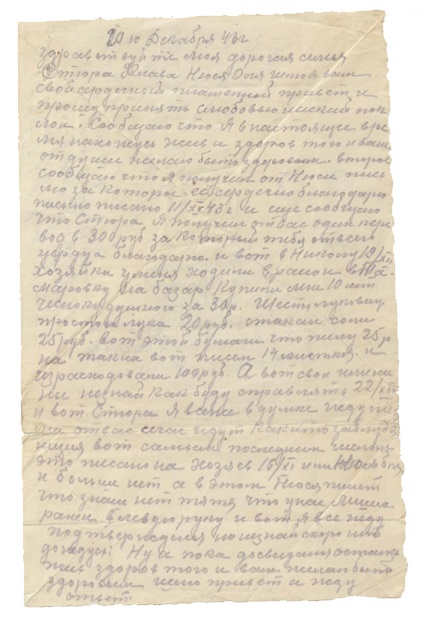 10 Декабря 43 г
Здравствуйте моя дорогая семья
Стюра Клава Нюся Зоя шлю вам
свой сердечный пламенный привет и
прошу принять с любовью низкий пок
лон. Сообщаю что Я в настоящее вре
мя нахожусь жив и здоров того и вам
от души желаю быть здоровым. второе
сообщаю что Я получил от Нюси пись
мо за которое сердечно благодарю
письмо писано 11/XI 43 г и еще сообщаю
что Стюра Я получил от вас один пере
вод в 300 руб за который тебя от всего
сердца благодарю. и вот в
хозяйка у меня ходила в район
на базар купили мне 10 шт
чесноку за 30 р.
простого лука 20 руб. стакан соли
25 руб. вот этой бумаги что пишу 25 р
на такия вот писем 14 и
израсходовали 100 руб. А вот свои имени
ны незнай как буду справлять 22/XII
и вот Стюра Я все в думке жду пись
ма от вас сечас идут какито
вот самым последним числом
это писано на хозяев 15/XI или
и больше нет а в этом Нюся пишет
что знаем нет тятя, что у нас Миша
ранен в левую руку и вот я все жду
подтверждения но незнай скоро или
дождусь! Ну а пока досвидания остаюсь
жив здоров того и вам желаю быть
здоровым шлю привет и жду
ответ